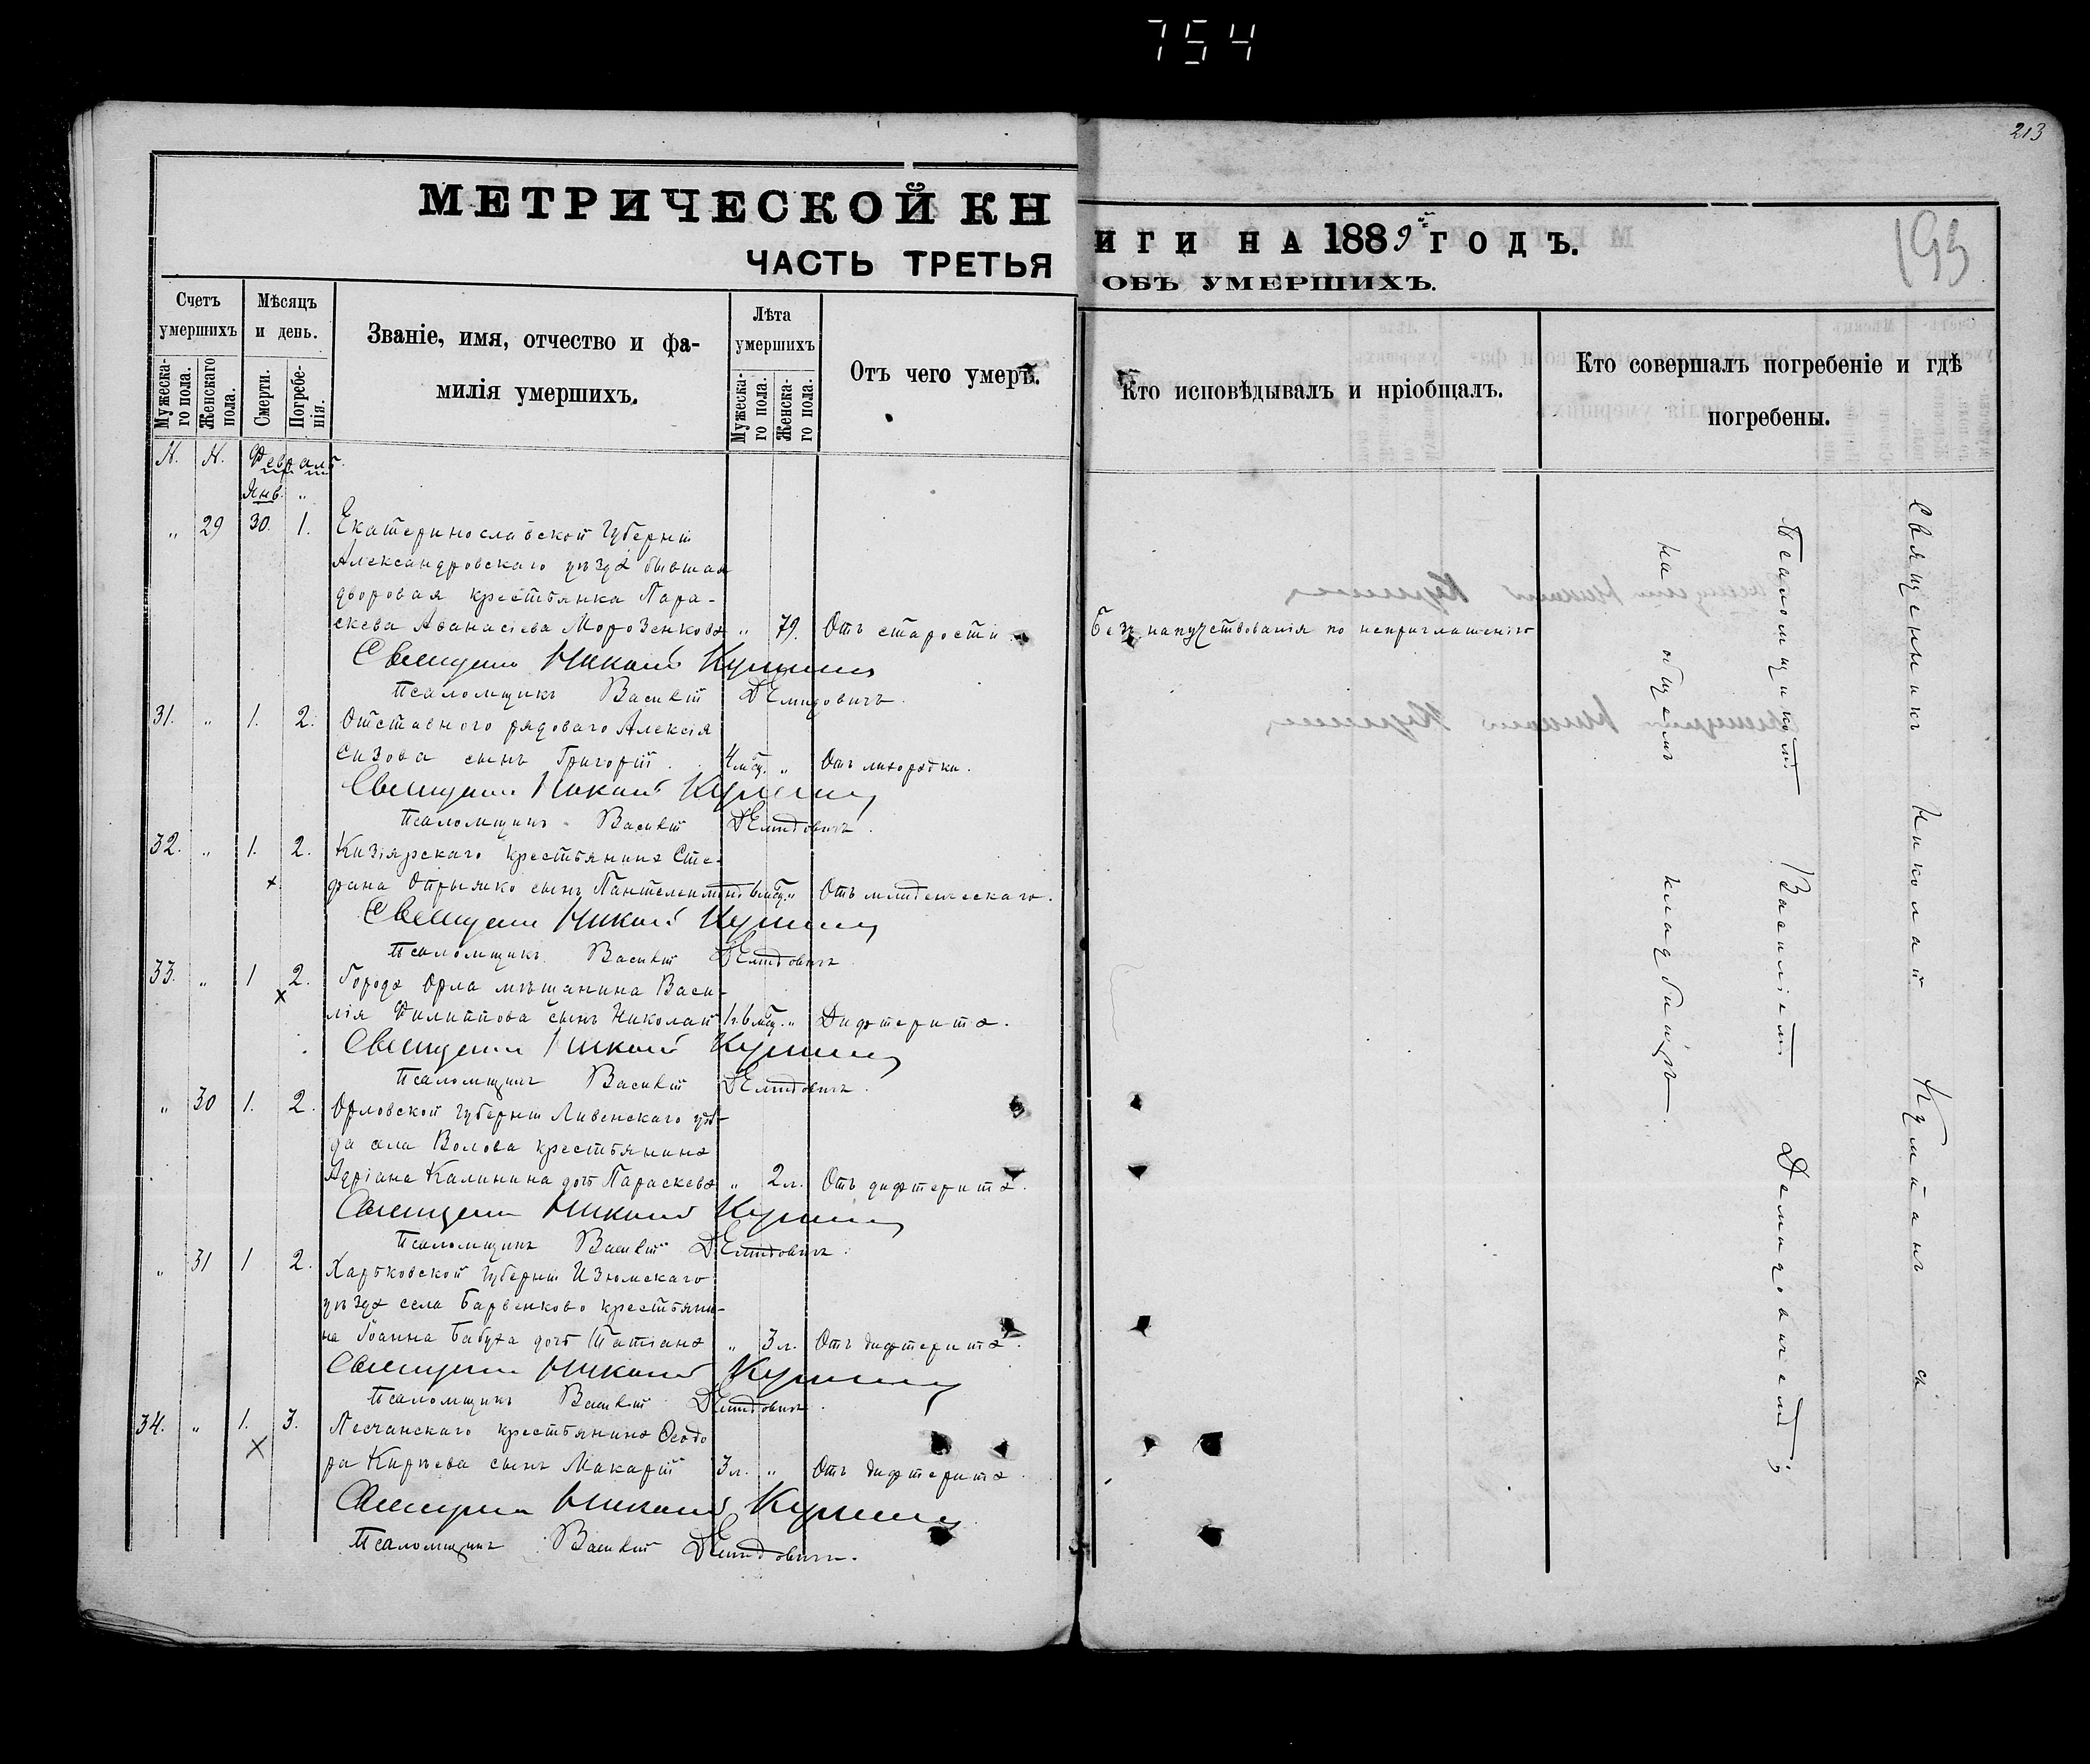 754
213
193
МЕТРИЧЕСКОЙ КН
ЧАСТЬ ТРЕТЬЯ
ИГИ НА 1889й ГОДЪ.
ОБЪ УМЕРШИХЪ.
Счетъ умершихъ
Мужеска-го пола.
Женскаго пола.
Мѣсяцъ и день.
Смерти.
Погребе-нія.
Званіе, имя, отчество и фа-
милія умершихъ.
Лѣта умершихъ
Мужеска-го пола.
Женска-го пола.
Отъ чего умеръ.
Кто исповѣдывалъ и пріобщалъ.
Кто совершалъ погребеніе и гдѣ
погребены.
N. N. Февраль.
Янв. „
„ 29 30. 1. Екатеринославской Губерніи
Александровскаго уѣзда бывшая
дворовая крестьянка Пара-
скева Аѳанасіева Морозенкова „ 79. Отъ старости. без напутствованія по неприглашенію
Священникъ Николай
Псаломщикъ Василій Демидовичъ.
31. „ 1. 2. Отставного рядоваго Алексія
Сизова сынъ Григорій. 4 мѣц. „ Отъ лихорадки.
Священникъ Николай
Псаломщикъ Василій Демидовичъ.
32. „ 1. 2. Кизіярскаго крестьянина Сте-
фана Опрышко сынъ Пантелеимонъ 6 мѣц. „ Отъ младенческаго.
Священникъ Николай
Псаломщикъ Василій Демидовичъ
33. „ 1 2. Города Орла мѣщанина Васи-
лія Филиппова сынъ Николай 1 г. 6 мѣц. „ Дифтерита.
Священникъ Николай
Псаломщикъ Василій Демидовичъ.
„ 30 1. 2. Орловской Губерніи Ливенскаго уѣз-
да села Волова крестьянина
Адріана Калинина дочь Параскева „ 2 л. Отъ дифтерита.
Священникъ Николай
Псаломщикъ Василій Демидовичъ.
„ 31 1 2. Харьковской Губерніи Изюмскаго
уѣзда села Барвенково крестьяни-
на Іоанна Бабуха дочь Татіана „ 3 л. Отъ дифтерита.
Священникъ Николай
Псаломщикъ Василій Демидовичъ.
34. „ 1. 3. Песчанскаго крестьянина Ѳеодо
ра Кирѣева сынъ Макарій 3 л. „ Отъ дифтерита.
Священникъ Николай
Псаломщикъ Василій Демидовичъ.
Священникъ Николай съ
Псаломщикомъ Василіемъ Демидовичемъ;
на общемъ кладбищѣ.